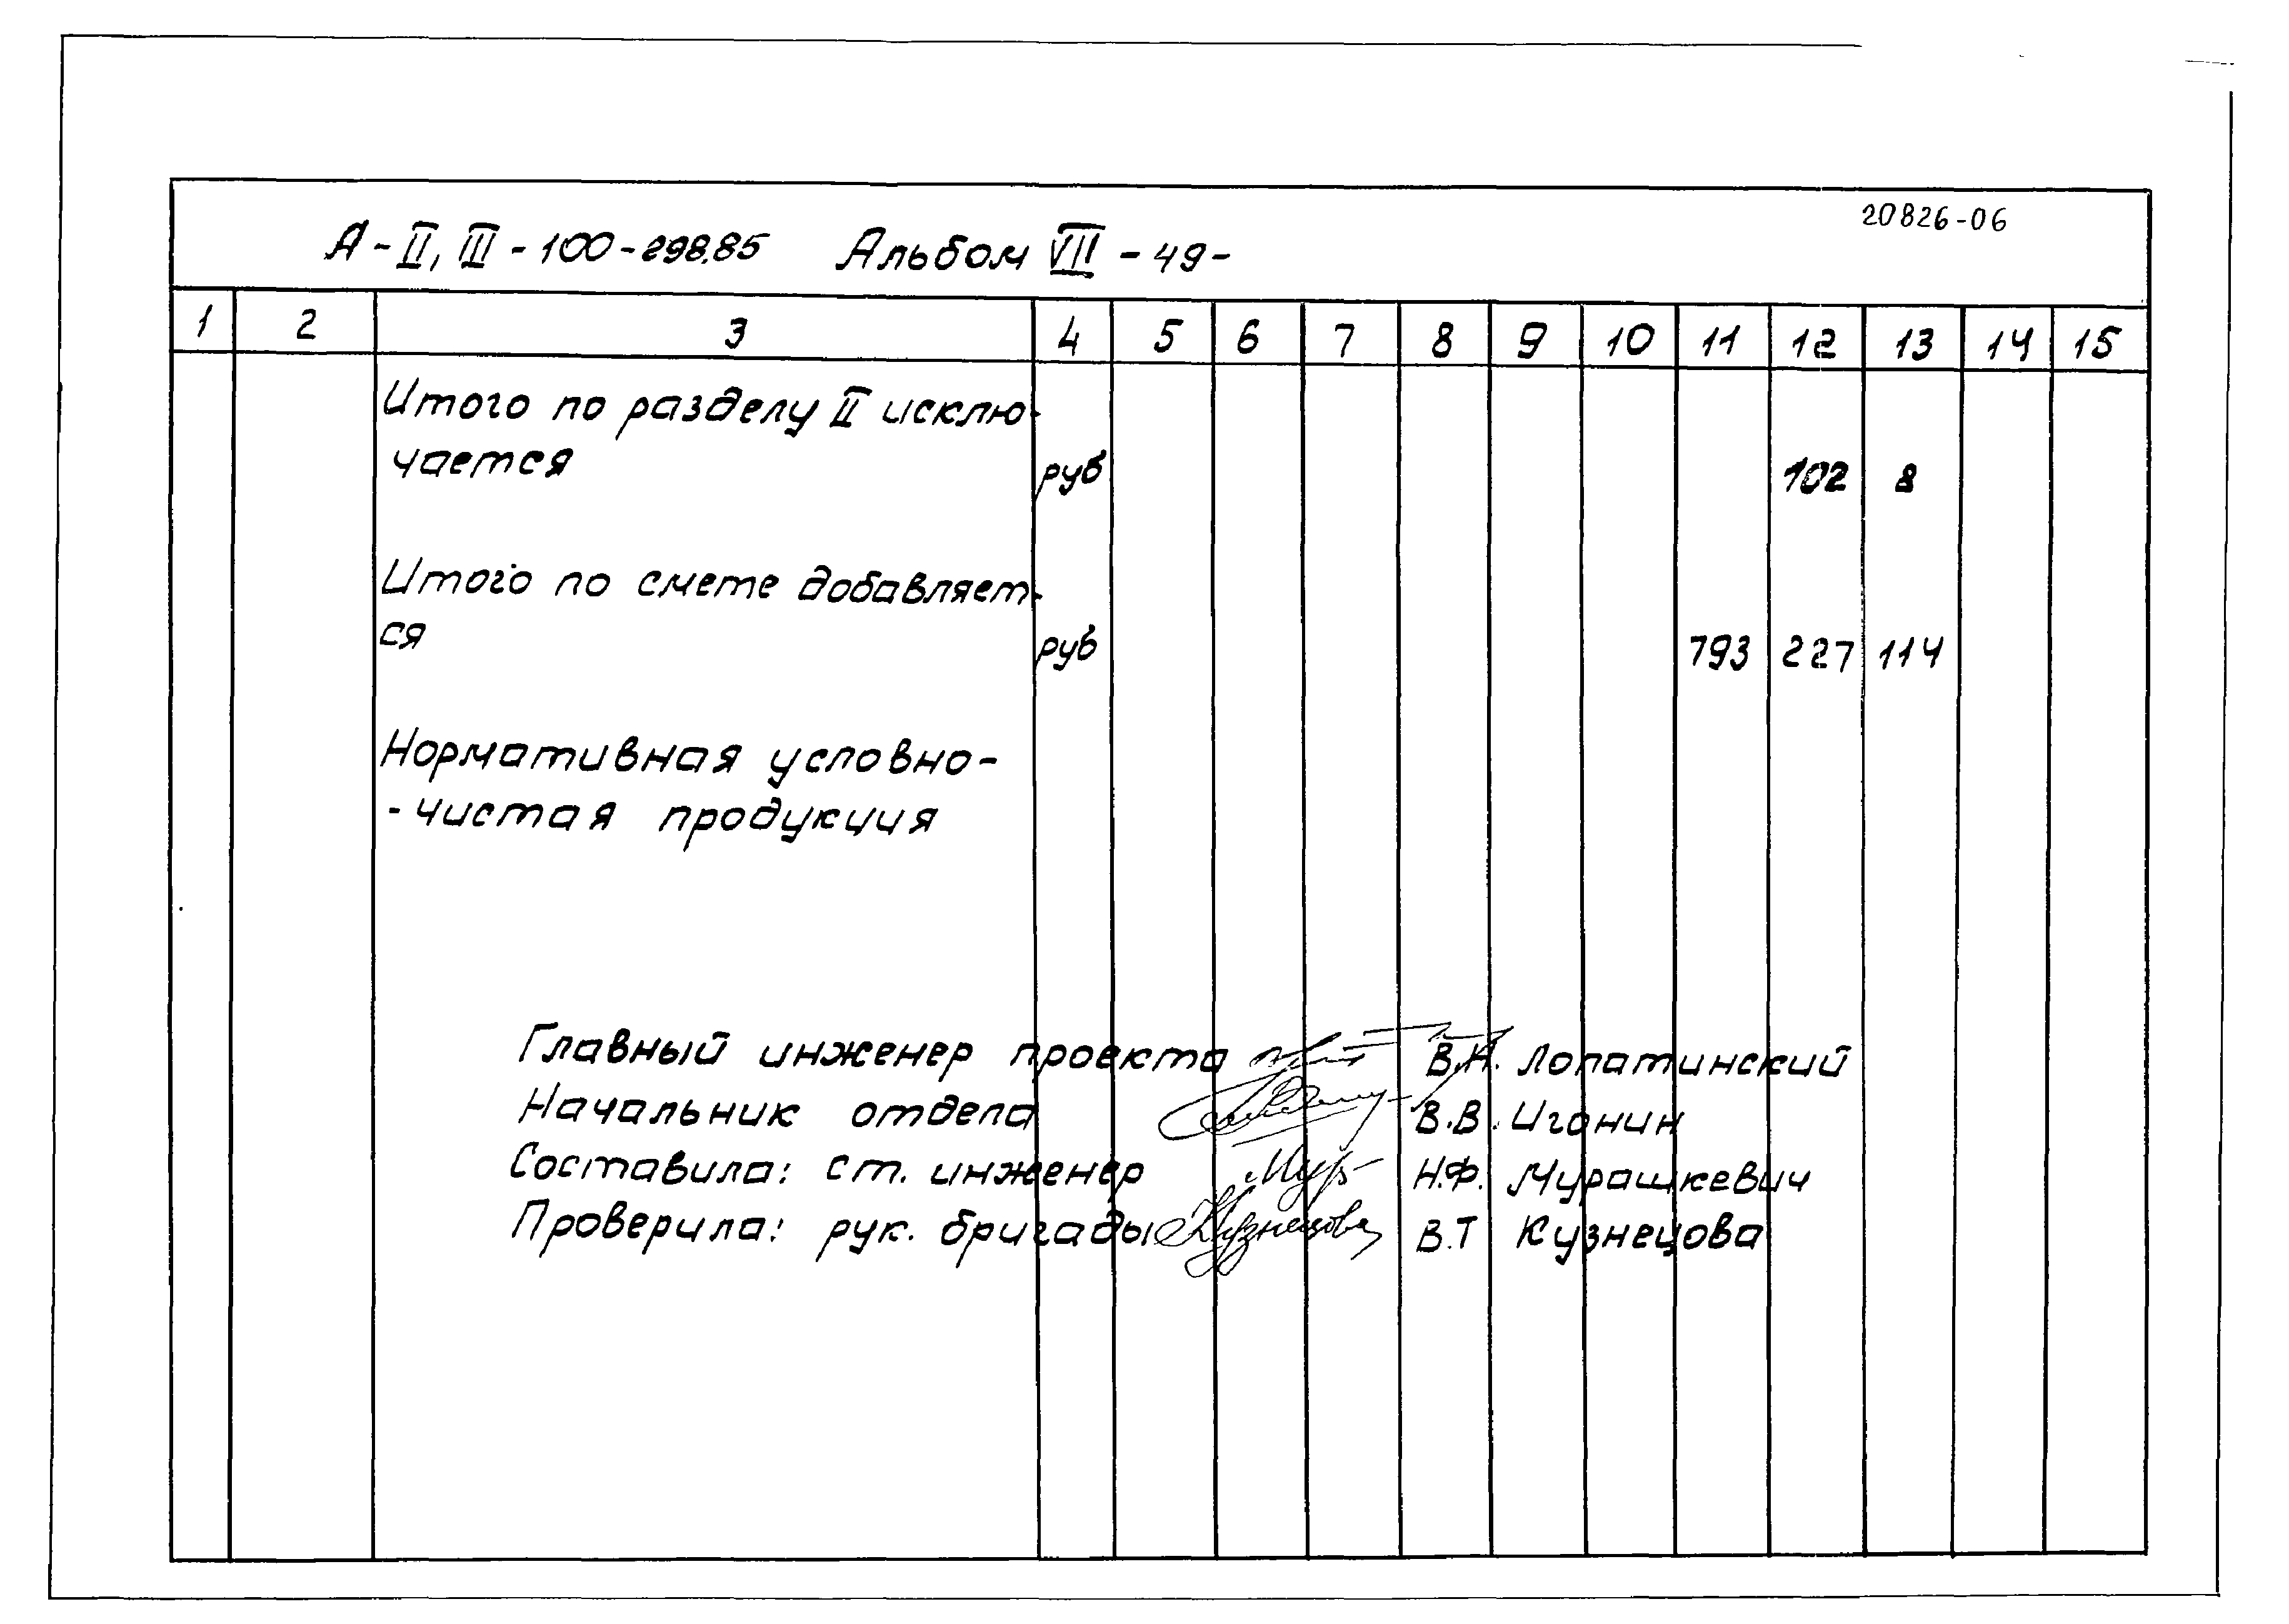 20826-06
А-II, III-100-298.85 Альбом VII -49-
1 2 3 4 5 6 7 8 9 10 11 12 13 14 15
Итого по разделу II исклю-
чается руб 102 8
Итого по смете добавляет-
ся руб 793 227 114
Нормативная условно-
-чистая продукция
Главный инженер проекта В.Н. Лопатинский
Начальник отдела В.В. Игонин
Составила: ст. инженер Мур Н.Ф. Мурашкевич
Проверила: рук. бригады Кузнецова В.Т Кузнецова